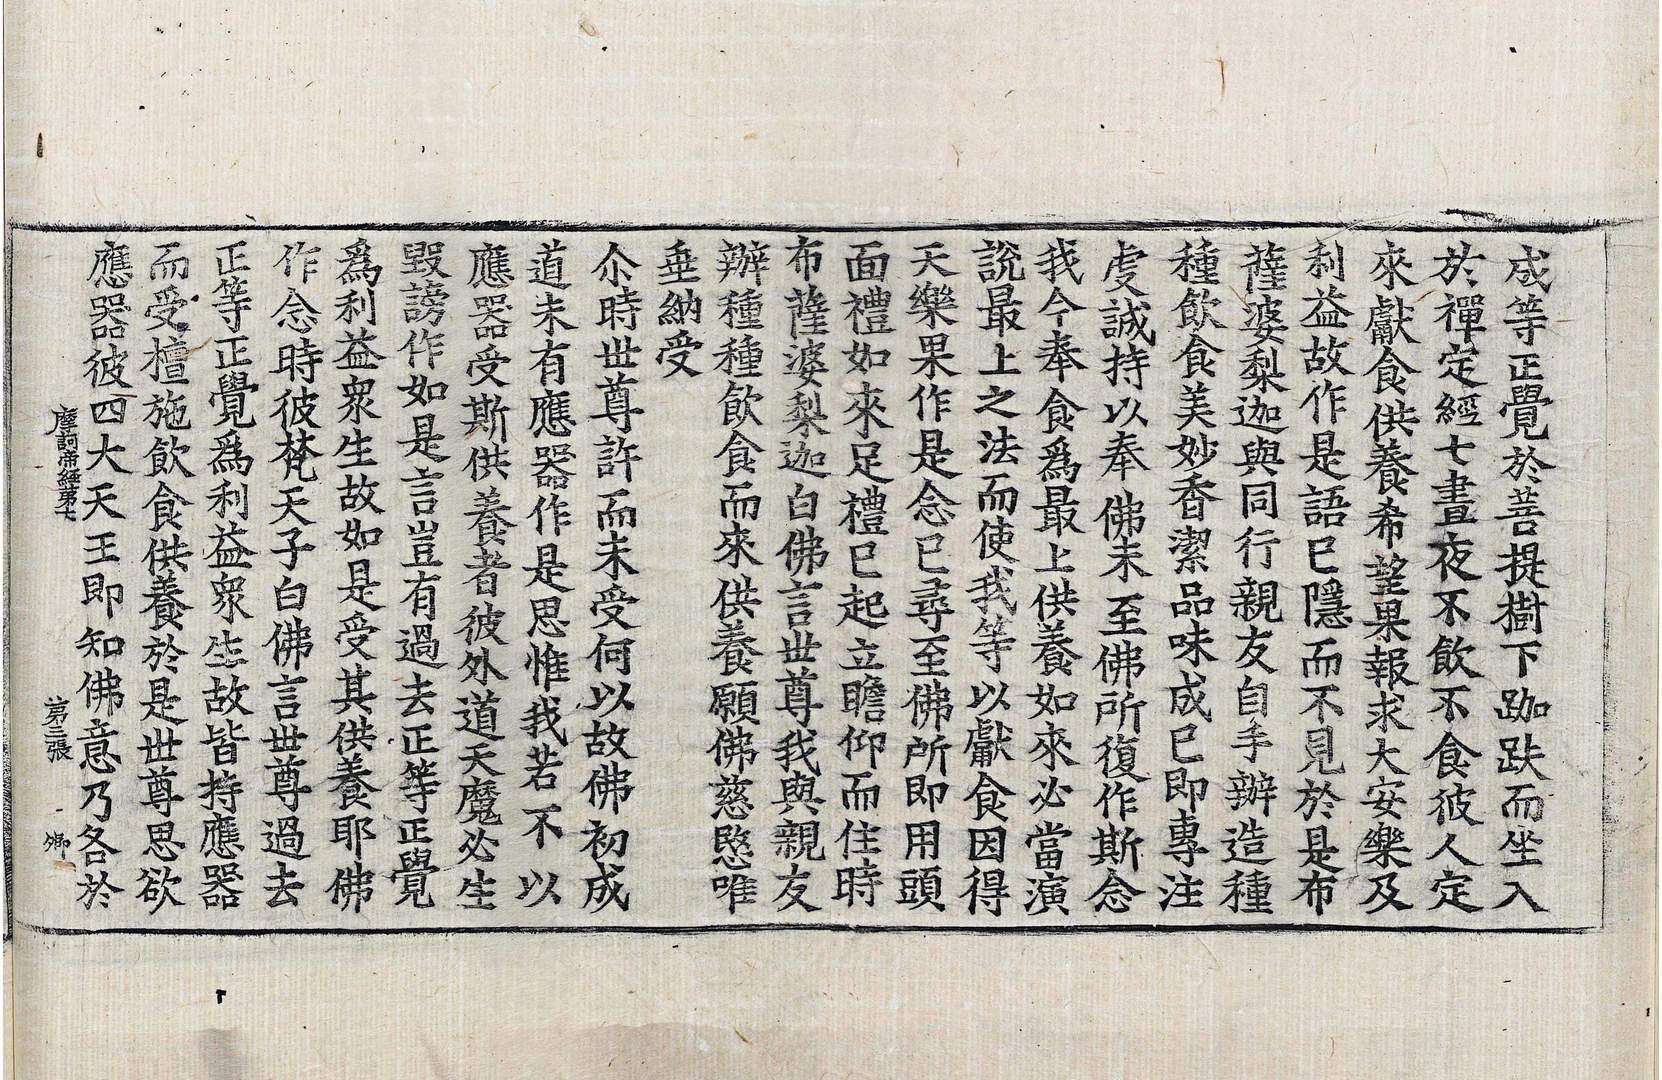 成等正覺於菩提樹下跏趺而坐入
於禪定經七晝夜不飲不食彼人定
來獻食供養希望果報求大安樂及
利益故作是語已隱而不見於是布
薩婆梨迦與同行親友自手辦造種
種飲食美妙香潔品味成已即專注
虔誠持以奉佛未至佛所復作斯念
我今奉食為最上供養如來必當演
說最上之法而使我等以獻食因得
天樂果作是念已尋至佛所即用頭
面禮如來足禮已起立瞻仰而住時
布薩婆梨迦白佛言世尊我與親友
辦種種飲食而來供養願佛慈愍唯
垂納受
尒時世尊許而未受何以故佛初成
道未有應器作是思惟我若不以
應器受斯供養者彼外道天魔必生
毀謗作如是言豈有過去正等正覺
為利益眾生故如是受其供養耶佛
作念時彼梵天子白佛言世尊過去
正等正覺為利益眾生故皆持應器
而受檀施飲食供養於是世尊思欲
應器彼四大天王即知佛意乃各於
摩訶帝經第七 第三張 鄉